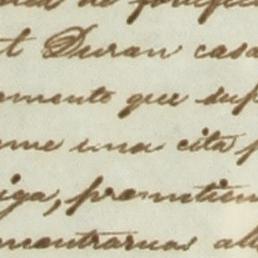 t Duran casa
omento que sup
me una cita p
iga, prometien
ncontrarnos all